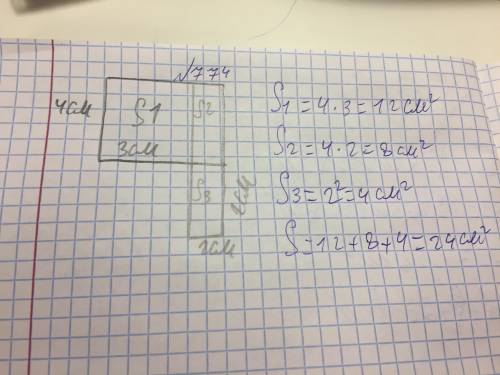 №774
4см
S1
S2
3см
S3
2см
S1 = 4 · 3 = 12см²
S2 = 4 · 2 = 8см²
S3 = 2² = 4см²
S = 12 + 8 + 4 = 24см²